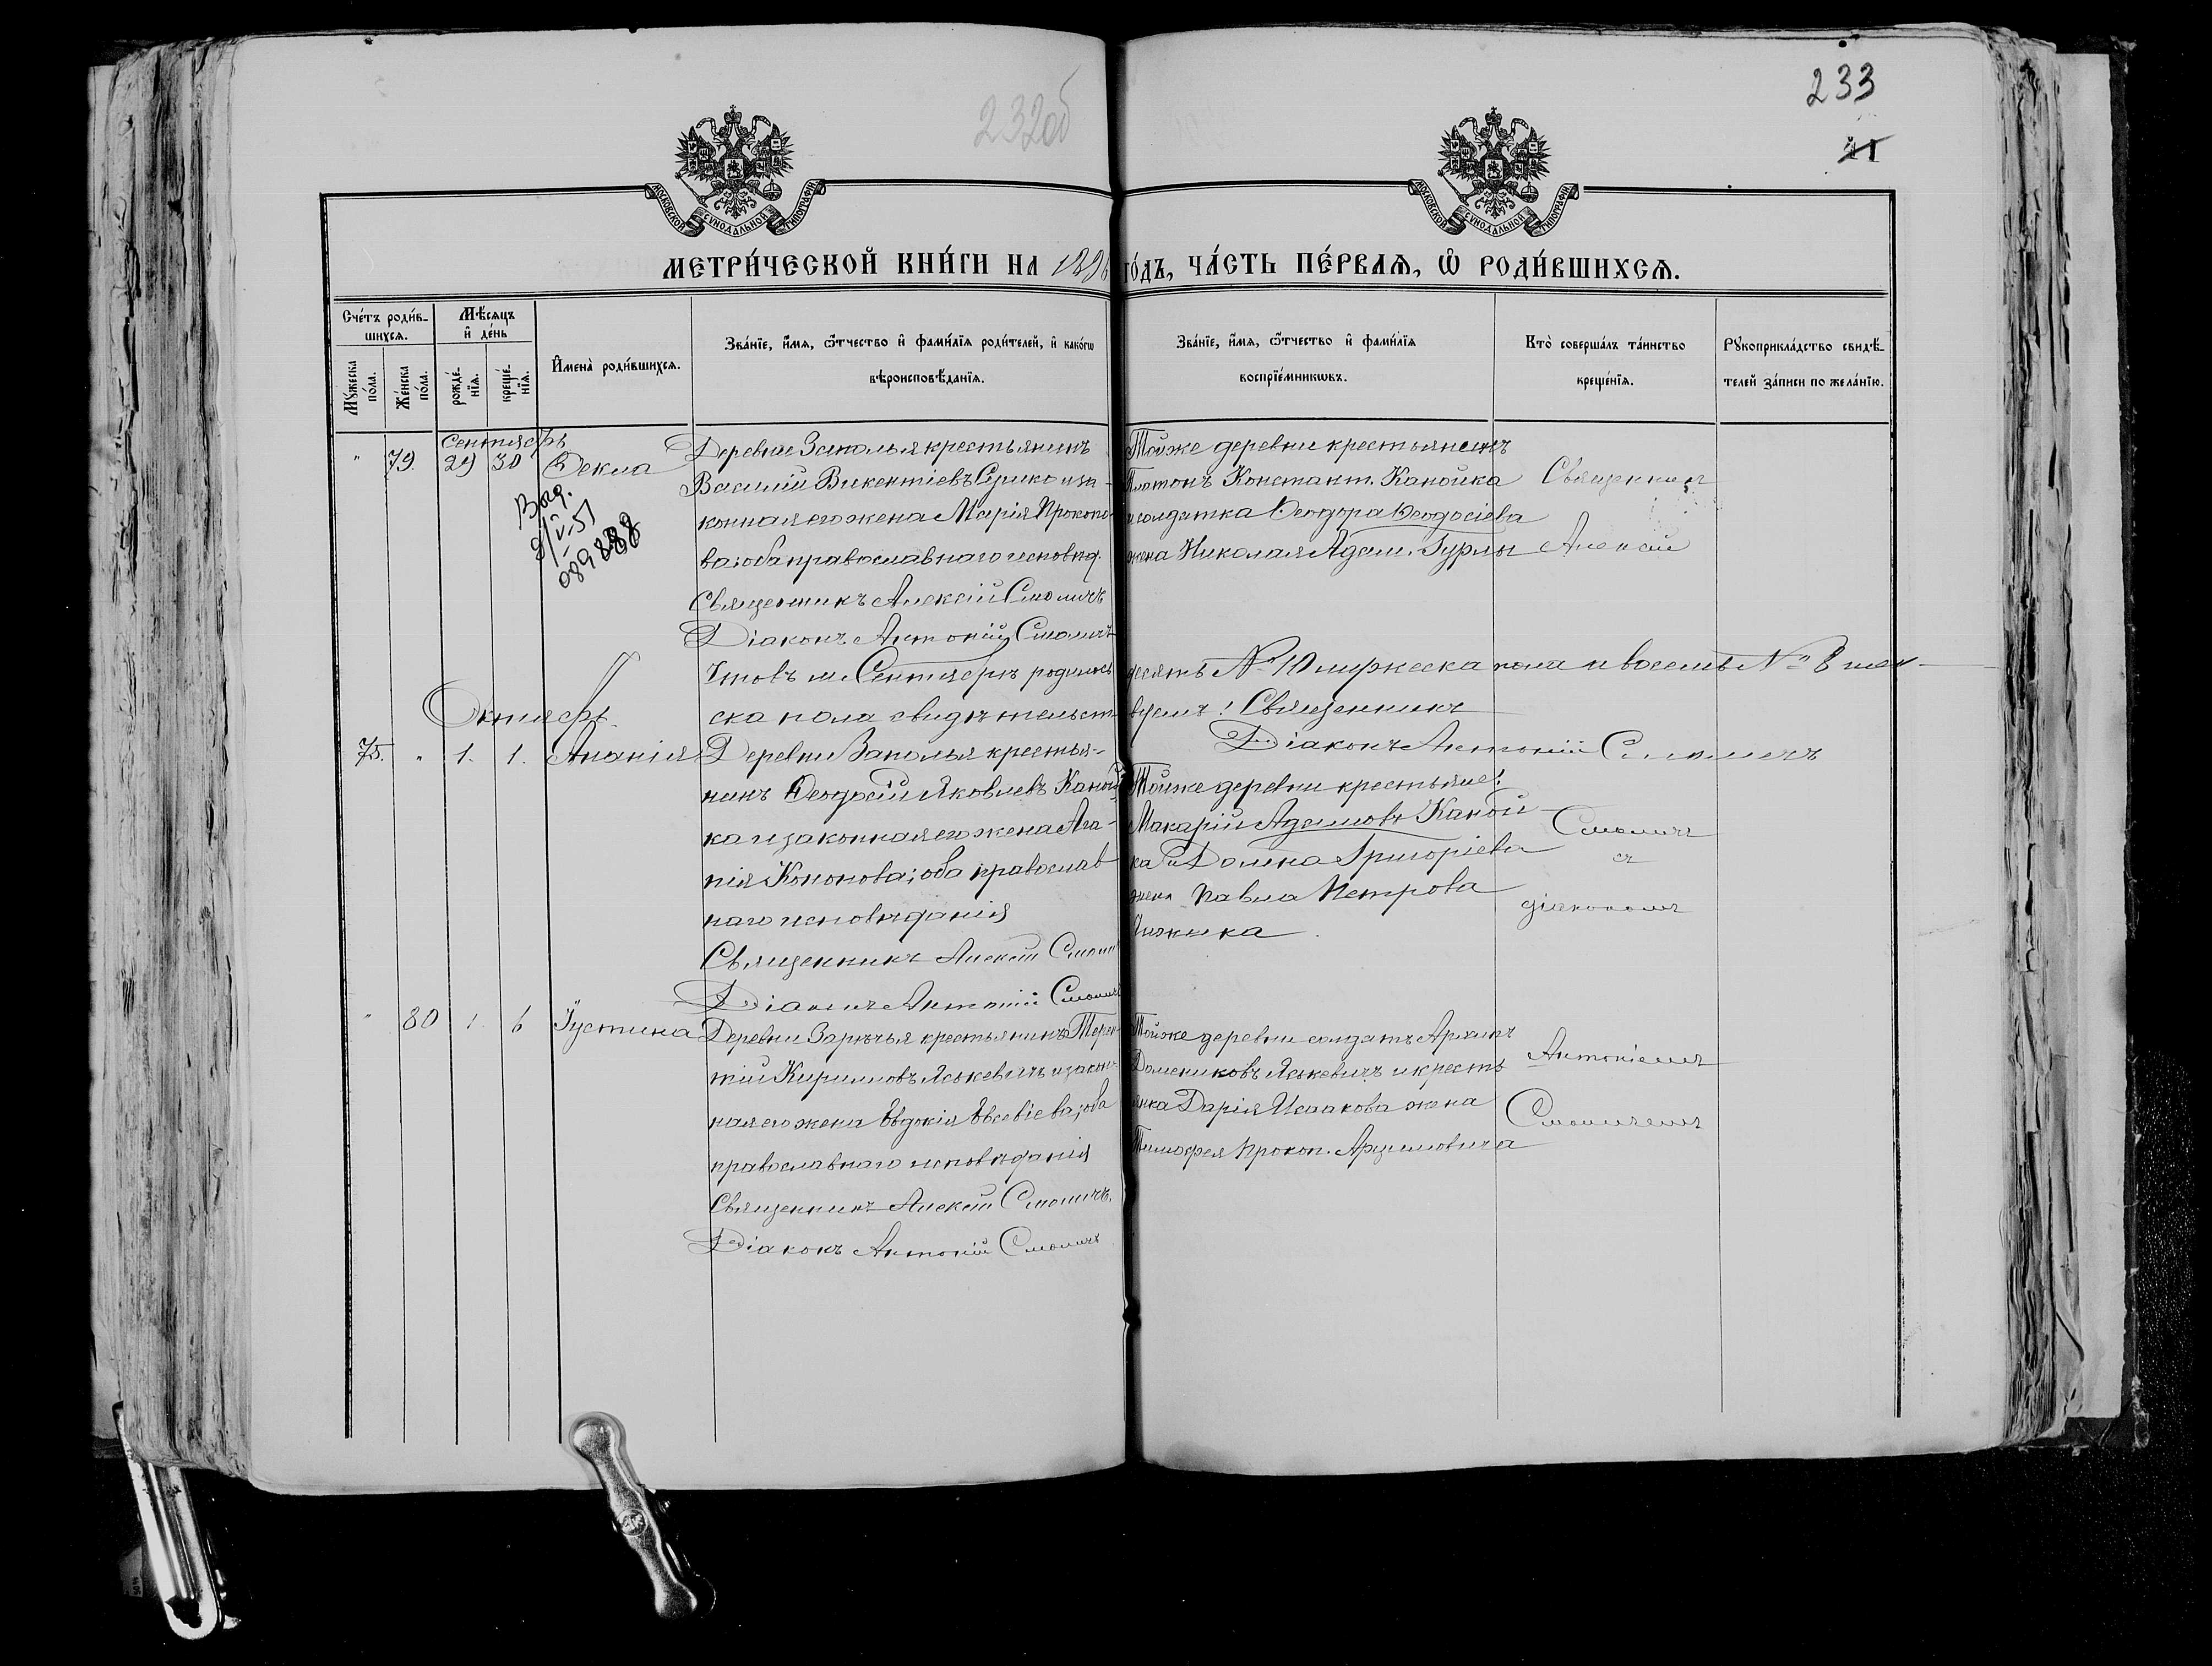 232об
233
41
МОСКОВСКОЙ СУНОДАЛЬНОЙ ТИПОГРАФІИ
МОСКОВСКОЙ СУНОДАЛЬНОЙ ТИПОГРАФІИ
МЕТРИ́ЧЕСКОЙ КНИ́ГИ НА 1896 ГО́ДЪ, ЧА́СТЬ ПЕ́РВАЯ, Ѡ҆ РОДИ́ВШИХСЯ.
Сче́тъ роди́в-
шихся.
Мѣ́сяцъ
и҆ де́нь
Мꙋ́жеска по́ла.
Же́нска по́ла.
рожде́-нїя.
креще́-нїя.
И҆мена̀ роди́вшихся.
Зва́нїе, и҆́мя, ѻ҆́тчество и҆ фами́лїя роди́телей, и҆ како́гѡ
вѣроисповѣ́данїя.
Зва́нїе, и҆́мя, ѻ҆́тчество и҆ фами́лїя
воспрїе́мникѡвъ.
Кто̀ соверша́лъ та́инство
креще́нїя.
Рꙋкоприкла́дство свидѣ́-
телей за́писи по жела́нїю.
Сентябрь
" 79. 29 30 Ѳекла
Выд.
9/V-51
089888
Деревни Заполья крестьянинъ
Василій Викентіевъ Сурико и за-
конная его жена Марія Прокопо-
ва; оба православнаго исповѣд.
Священникъ Алексій Смоличъ
Діаконъ Антоній Смоличъ
Тойже деревни крестьянинъ
Платонъ Констант. Канойка
и солдатка Ѳеодора Ѳеодосіева
жена Николая Адам. Гурлы
Священник
Алексій
Итого въ м. Сентябрѣ родилось десять № 10 мужеска пола и восемь № 8 жен-
ска пола свидѣтельствуемъ: Священникъ
Діаконъ Антоній Смоличъ
Октябрь
75. " 1. 1. Ананія
Деревни Заполья крестья-
нинъ Ѳеодосій Яковлевъ Каной-
ка и законная его жена Ага-
пія Кононова; оба православ
наго исповѣданія
Священникъ Алексій Смоличъ
Діаконъ Антоній Смоличъ
Тойже деревни крестьяне:
Макарій Адамовъ Каной
ка и Домна Григоріева
жена Павла Петрова
Чижика.
Смоличъ
съ
діакономъ
" 80 1. 6 Іустина
Деревни Зарѣчья крестьянинъ Терен-
тій Кирилловъ Яськевичъ и закон-
ная его жена Евдокія Евсевіева; оба
православнаго исповѣданія
Священникъ Алексій Смоличъ.
Діаконъ Антоній Смоличъ
Тойже деревни солдатъ Архипъ
Домениковъ Яськевичъ и кресть
янка Дарія Исаакова жена
Тимофея Прокоп. Арцимовича
Антоніемъ
Смоличемъ